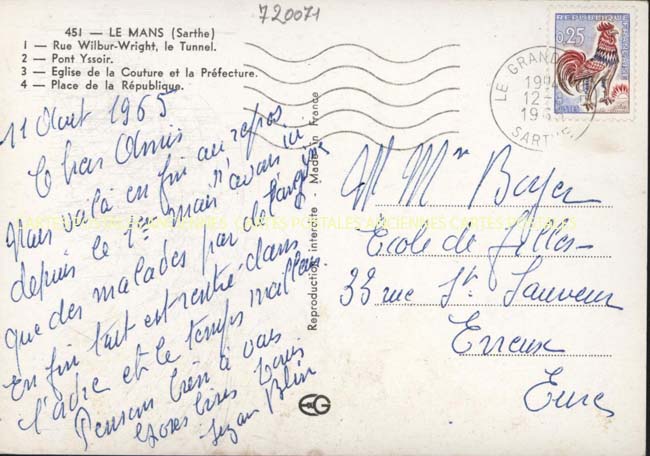 720071
451 — LE MANS (Sarthe)
1 — Rue Wilbur-Wright, le Tunnel.
2 — Pont Yssoir.
3 — Eglise de la Couture et la Préfecture.
4 — Place de la République.
11 Aout 1965
Chers Amis
Nous voilà enfin au repos
depuis le 1er mai n'avons eu
que des malades par
Enfin tout est rentré dans
l'ordre et le temps meilleur
Pensons bien à vous
Bons
Blin
Reproduction interdite Made in France
REPUBLIQUE FRANCAISE
0,25
LE GRAND
19H
12-
196
SARTHE
M Mme Boyer
Ecole de filles
33 rue St Sauveur
Evreux
Eure
CARTES POSTALES ANCIENNES CARTES POSTALES ANCIENNES CARTES POSTALES